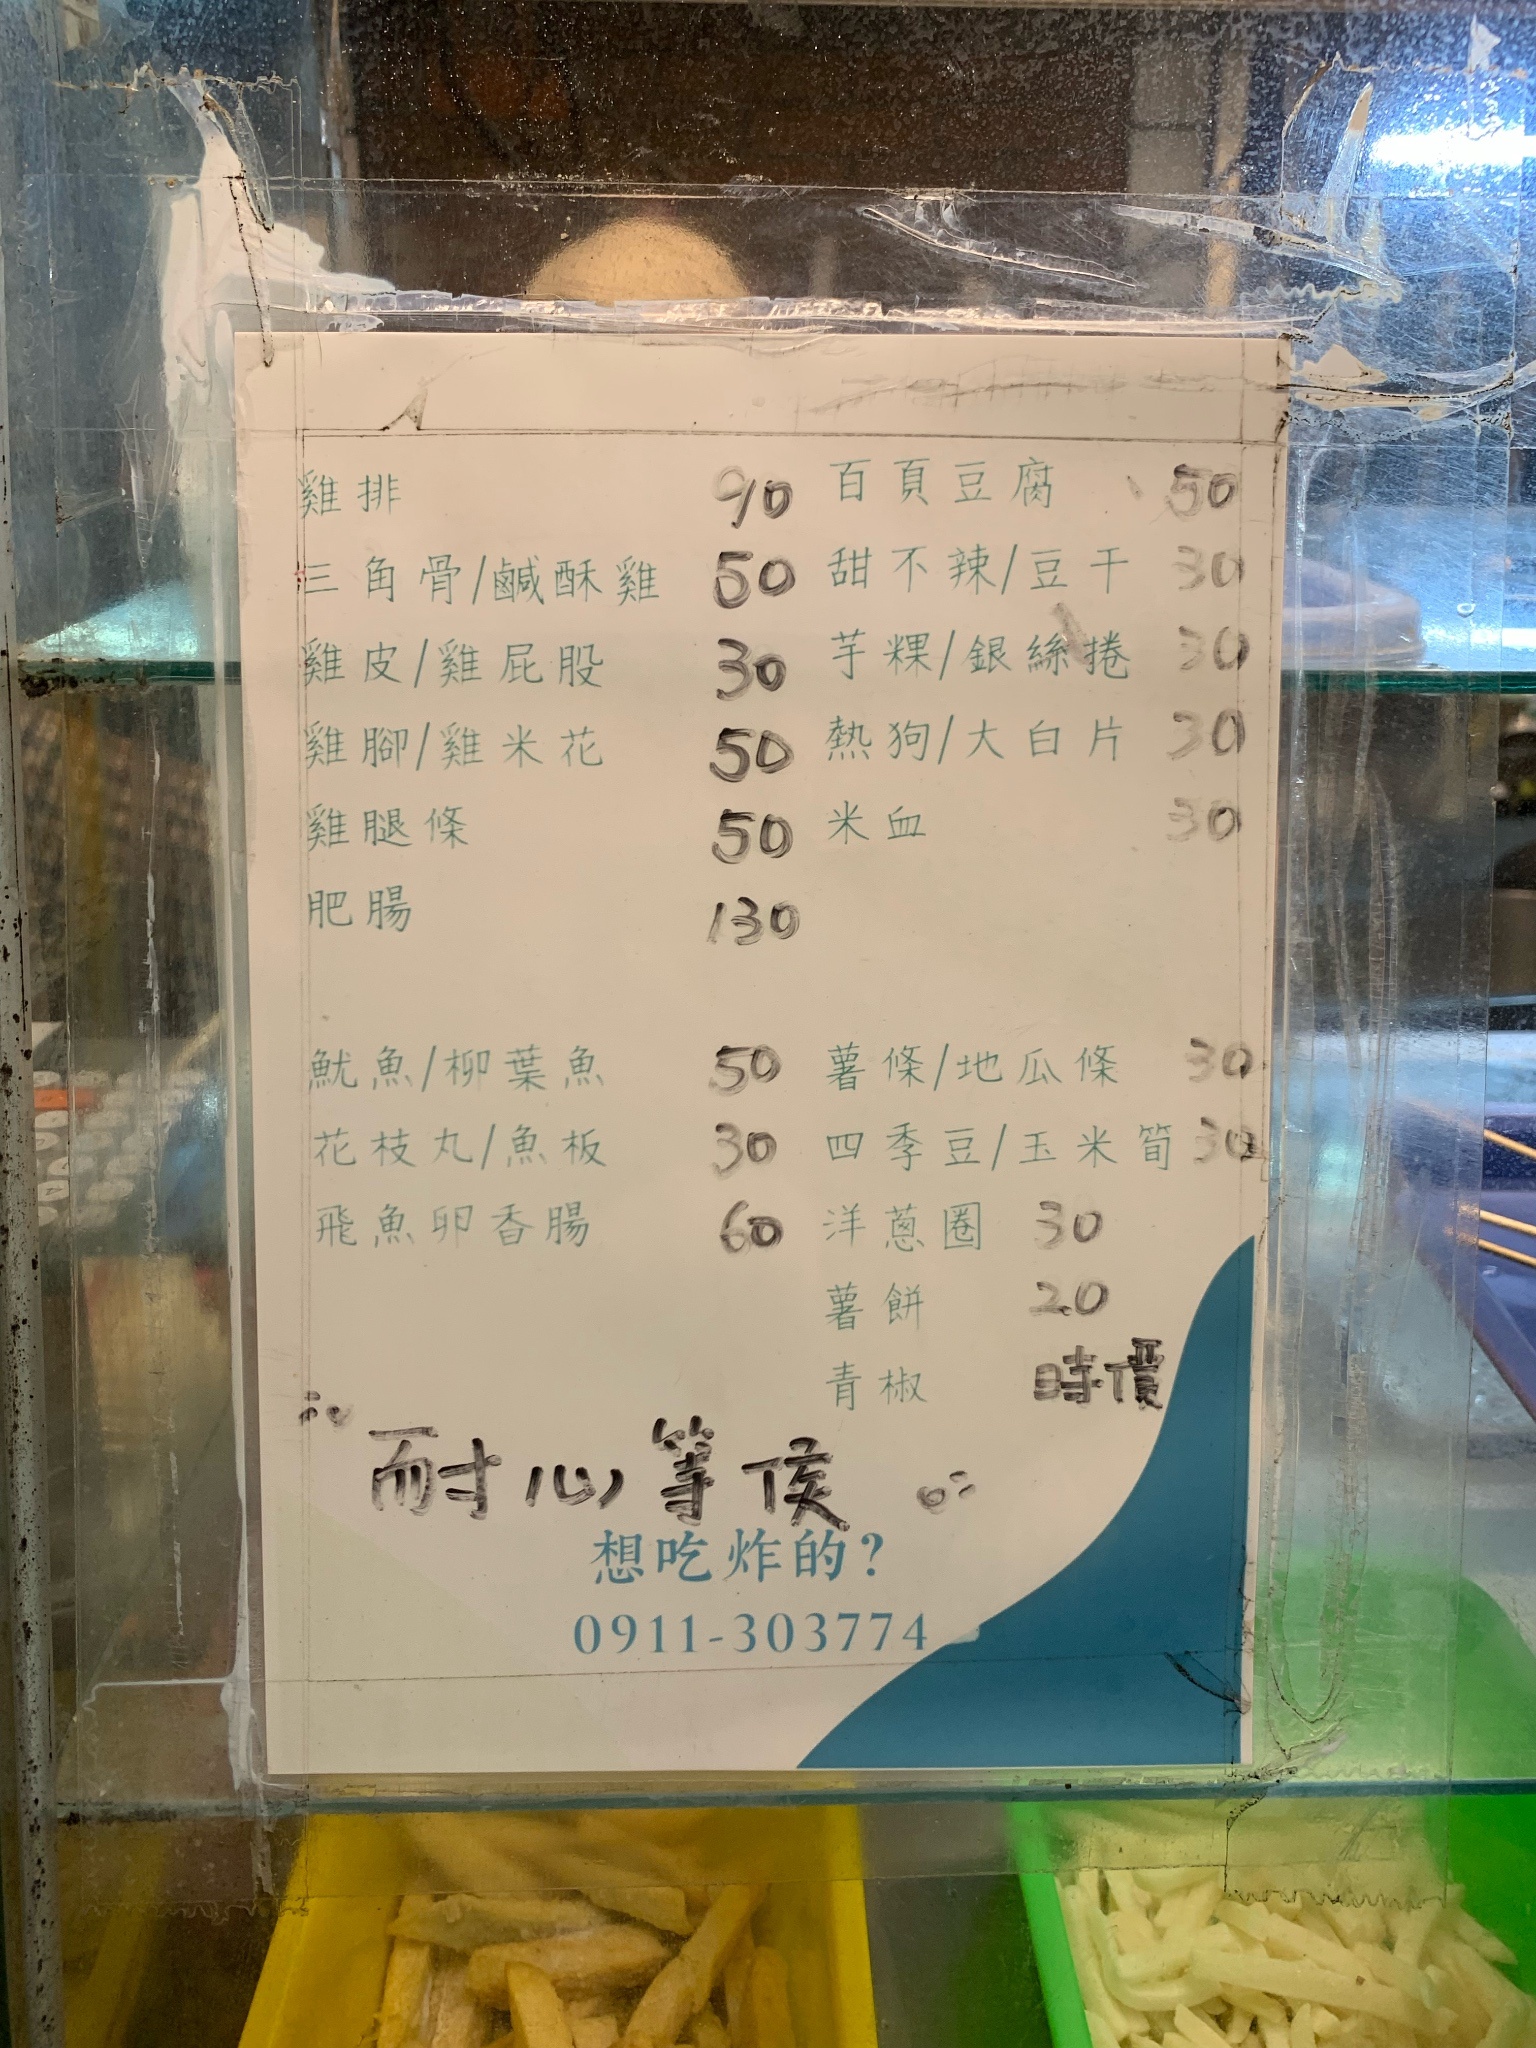 雞排 90
三角骨/鹹酥雞 50
雞皮/雞屁股 30
雞腳/雞米花 50
雞腿條 50
肥腸 130
百頁豆腐 50
甜不辣/豆干 30
芋粿/銀絲捲 30
熱狗/大白片 30
米血 30
魷魚/柳葉魚 50
花枝丸/魚板 30
飛魚卵香腸 60
薯條/地瓜條 30
四季豆/玉米筍 30
洋蔥圈 30
薯餅 20
青椒 時價
耐心等侯
想吃炸的?
0911-303774